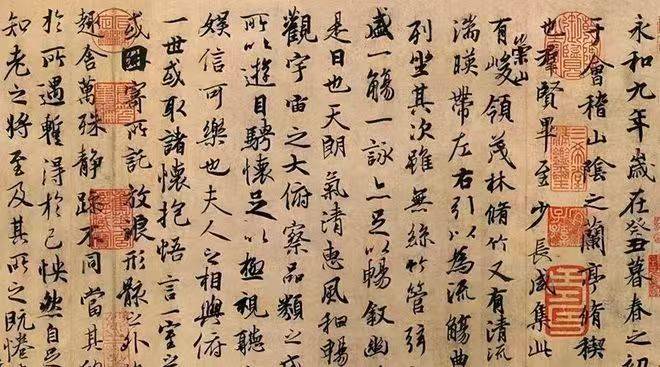 永和九年歲在癸丑暮春之初
于會稽山陰之蘭亭脩稧
也羣賢畢至少長咸集此
有崇山峻領茂林脩竹又有清流
湍暎帶左右引以為流觴曲
列坐其次雖無絲竹管弦
盛一觴一詠亦足以暢敘幽
是日也天朗氣清惠風和暢
觀宇宙之大俯察品類之
所以遊目騁懷足以極視聽
娛信可樂也夫人之相與俯
一世或取諸懷抱悟言一室之
或因寄所託放浪形骸之外
趣舍萬殊静躁不同當其
於所遇蹔得於己怏然自足
知老之將至及其所之既惓